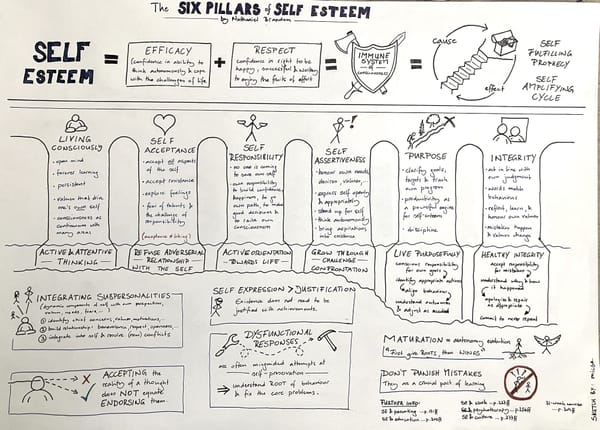 The SIX PILLARS of SELF ESTEEM
by Nathaniel Branden
SELF
ESTEEM
=
EFFICACY
(confidence in ability to
think autonomously & cope
with the challenges of life
+
RESPECT
confidence in right to be
happy, successful & worthy
to enjoy the fruits of effort
=
IMMUNE
SYSTEM
of
CONSCIOUSNESS
=
cause
effect
SELF
FULFILLING
PROPHECY
SELF
AMPLIFYING
CYCLE
LIVING
CONSCIOUSLY
• open mind
• forever learning
• persistent
• values that drive
one's own self
• consciousness as
continuum with
many areas
ACTIVE & ATTENTIVE
THINKING
SELF
ACCEPTANCE
• accept all aspects
of the self
• accept resistance
• explore feelings
• fear of talents &
the challenge of
responsibility
(acceptance ≠ liking)
REFUSE ADVERSERIAL
RELATIONSHIP
WITH THE SELF
SELF
RESPONSIBILITY
• no one is coming
to save our self
• own responsibility
to build confidence,
happiness, to go
own path, to make
good decisions &
to raise own
consciousness
ACTIVE ORIENTATION
TOWARDS LIFE
SELF
ASSERTIVENESS
• honour own needs,
desires, values,
• express self openly
& appropriately
• stand up for self
• think autonomously
• bring aspirations
into existence
GROW THROUGH
CHALLENGE
CONFRONTATION
PURPOSE
• clarify goals,
targets & track
own progress
• productivity as
a powerful engine
for self-esteem
• discipline
LIVE PURPOSEFULLY
conscious responsibility
for own goals
identify appropriate actions
align behaviour
understand outcomes
& adjust as needed
INTEGRITY
• act in line with
own judgment
• words match
behaviour
• reflect, learn &
honour own values
• mistakes happen &
values change
HEALTHY INTEGRITY
accept responsibility
for mistakes
understand why & how
it happened
apologise & repair
as appropriate
commit to never repeat
INTEGRATING SUBPERSONALITIES
(dynamic components of self with own perspectives,
values, needs, fears ... )
① identify chief concerns, values, motivations, ..
② build relationship: benevolence, respect, openness, ..
③ integrate into self & resolve (new) conflicts
ACCEPTING the
reality of a thought
does NOT equate
ENDORSING them.
SELF EXPRESSION > JUSTIFICATION
Existence does not need to be
justified with achievements.
DYSFUNCTIONAL
RESPONSES
are often misguided attempts at
self-preservation
→ understand ROOT of behaviour
& fix the core problems.
MATURATION = autonomy evolution
"First give ROOTS then WINGS"
DON'T PUNISH MISTAKES
They are a crucial part of learning
FURTHER INFO:
SE & parenting
SE & education
SE & work
SE & psychotherapy
SE & culture
SKETCH BY: MILSA